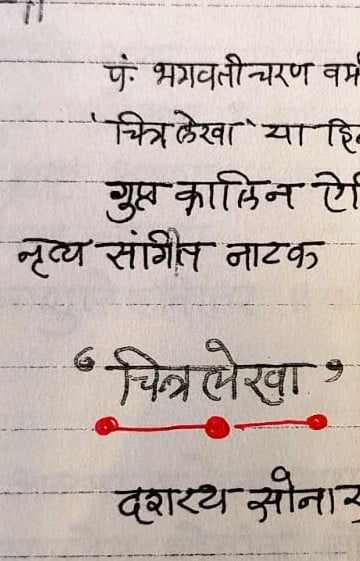 पं. भगवतीचरण वर्मा
'चित्रलेखा' या हिन
गुप्त कालिन ऐ
नृत्य संगीत नाटक
' चित्रलेखा '
दशरथ सोनार